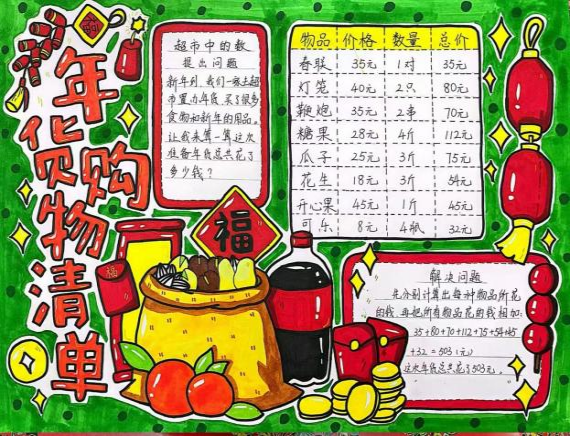 年货购物清单
超市中的数
提出问题
新年到,我们一家去超
市置办年货,买了很多
食物和新年的用品。
让我来算一算这次
准备年货总共花了
多少钱?
物品 价格 数量 总价
春联 35元 1对 35元
灯笼 40元 2只 80元
鞭炮 35元 2串 70元
糖果 28元 4斤 112元
瓜子 25元 3斤 75元
花生 18元 3斤 54元
开心果 45元 1斤 45元
可乐 8元 4瓶 32元
福
福
福
解决问题
先分别计算出每种物品所花
的钱,再把所有物品花的钱相加:
35+80+70+112+75+54+45
+32=503(元)
这次年货总共花了503元。